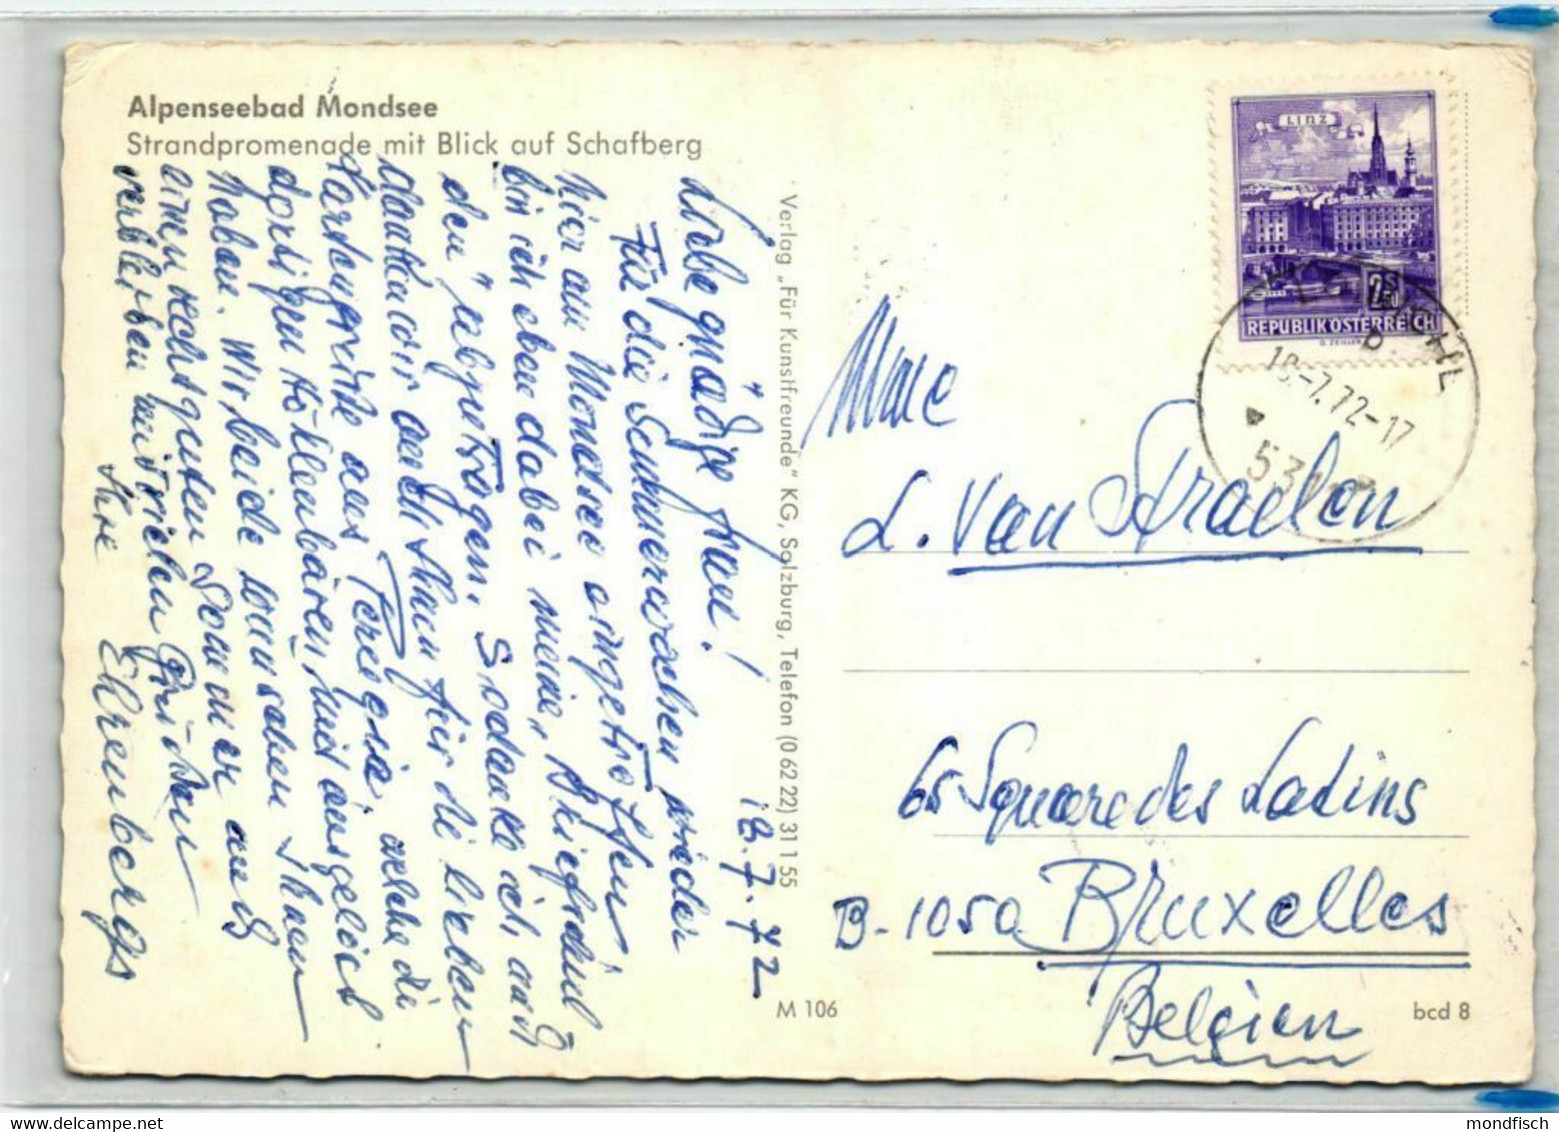 Alpenseebad Mondsee
Strandpromenade mit Blick auf Schafberg
18.7.72
Liebe gnädige Frau!
Für die Sommerwochen wieder
hier am Mondsee eingetroffen,
bin ich eben dabei meine „Briefschuld
den" abzutragen. So danke ich, auch
für die lieben
Kartengrüße aus Perugia, welche die
dortigen und ausgleich
haben. Wir beide wünschen Ihnen
einen recht guten Sommer und
verbleiben mit vielen Grüßen
Ihre Ehrenbergs
Verlag „Für Kunstfreunde" KG, Salzburg, Telefon (0 62 22) 31 1 55
M 106
bcd 8
LINZ
REPUBLIK ÖSTERREICH
18.-7.72-17
Mme
L. Van Straelen
65 Square des Latins
B-1050 Bruxelles
Belgien
mondfisch